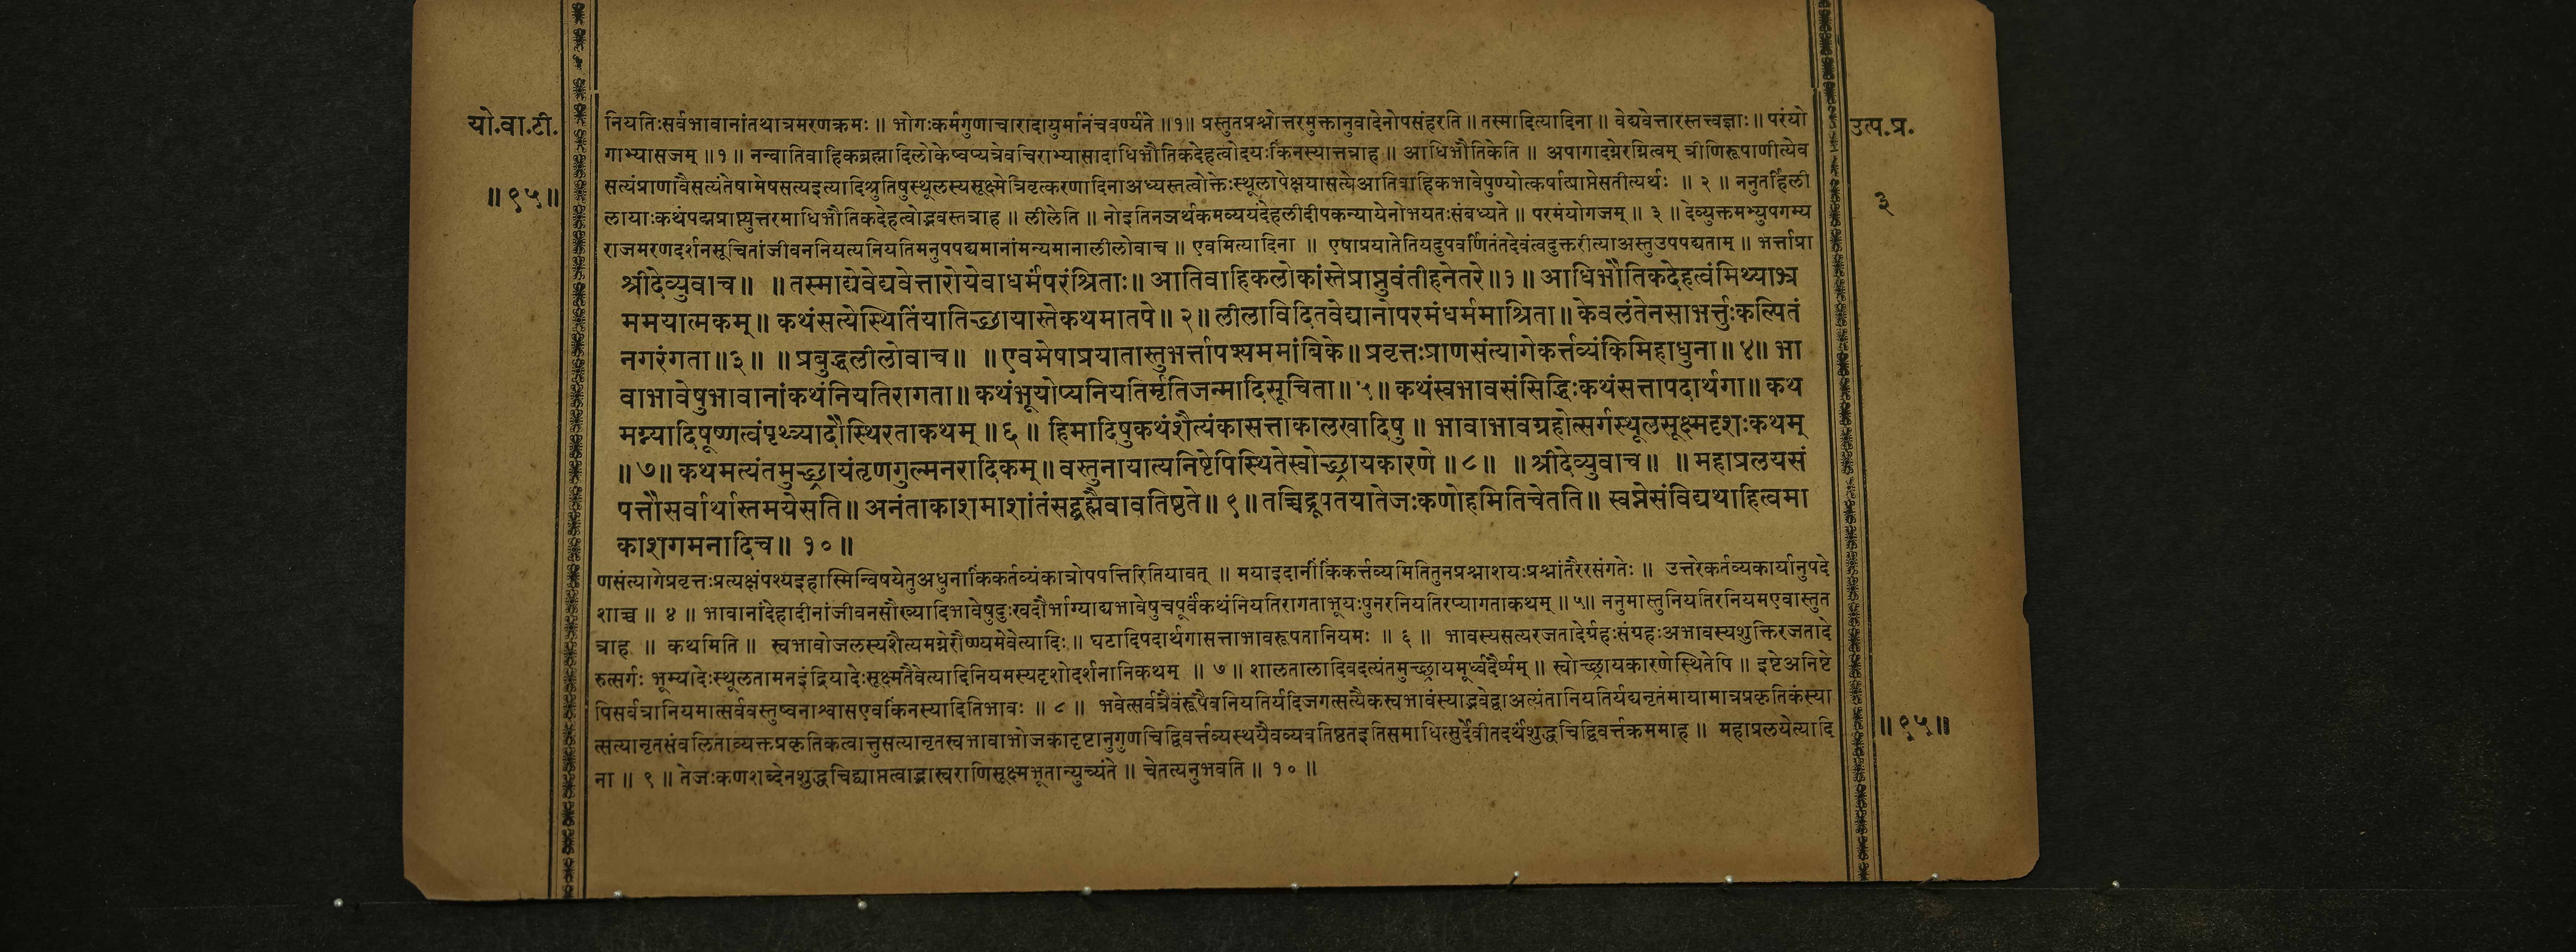 यो.वा.टी.
॥९५॥
नियतिःसर्वभावानांतथात्रमरणक्रमः ॥ भोगःकर्मगुणाचारादायुर्मानंचवर्ण्यते ॥१॥ प्रस्तुतप्रश्नोत्तरमुक्तानुवादेनोपसंहरति ॥ तस्मादित्यादिना ॥ वेद्यवेत्तारस्तत्त्वज्ञाः ॥ परंयो
गाभ्यासजम् ॥१॥ नन्वातिवाहिकब्रह्मादिलोकेष्वप्यत्रेवचिराभ्यासादाधिभौतिकदेहत्वोदयःकिंनस्यात्तत्राह ॥ आधिभौतिकेति ॥ अपागादग्नेरग्नित्वम् त्रीणिरूपाणीत्येव
सत्यंप्राणावैसत्यंतेषामेषसत्यइत्यादिश्रुतिषुस्थूलस्यसूक्ष्मेत्रिवृत्करणादिनाअध्यस्तत्वोक्तेःस्थूलापेक्षयासत्येआतिवाहिकभावेपुण्योत्कर्षात्प्राप्तेसतीत्यर्थः ॥ २ ॥ ननुतर्हिली
लायाःकथंपद्मप्राप्त्युत्तरमाधिभौतिकदेहत्वोद्भवस्तत्राह ॥ लीलेति ॥ नोइतिनञर्थकमव्ययंदेहलीदीपकन्यायेनोभयतःसंबध्यते ॥ परमंयोगजम् ॥ ३ ॥ देव्युक्तमभ्युपगम्य
राजमरणदर्शनसूचितांजीवननियत्यनियतिमनुपपद्यमानांमन्यमानालीलोवाच ॥ एवमित्यादिना ॥ एषाप्रयातेतियदुपवर्णितंतदेवंत्वदुक्तरीत्याअस्तुउपपद्यताम् ॥ भर्त्ताप्रा
श्रीदेव्युवाच ॥ ॥ तस्माद्येवेद्यवेत्तारोयेवाधर्मंपरंश्रिताः ॥ आतिवाहिकलोकांस्तेप्राप्नुवंतीहनेतरे ॥१॥ आधिभौतिकदेहत्वंमिथ्याभ्र
ममयात्मकम् ॥ कथंसत्येस्थितिंयातिच्छायास्तेकथमातपे ॥ २ ॥ लीलाविदितवेद्यानोपरमंधर्ममाश्रिता ॥ केवलंतेनसाभर्त्तुःकल्पितं
नगरंगता ॥३॥ ॥ प्रबुद्धलीलोवाच ॥ ॥ एवमेषाप्रयातास्तुभर्त्तापश्यममांबिके ॥ प्रवृत्तःप्राणसंत्यागेकर्त्तव्यंकिमिहाधुना ॥ ४॥ भा
वाभावेषुभावानांकथंनियतिरागता ॥ कथंभूयोप्यनियतिर्मृतिजन्मादिसूचिता ॥ ५॥ कथंस्वभावसंसिद्धिःकथंसत्तापदार्थगा ॥ कथ
मग्न्यादिषूष्णत्वंपृथ्व्यादौस्थिरताकथम् ॥ ६ ॥ हिमादिषुकथंशैत्यंकासत्ताकालखादिषु ॥ भावाभावग्रहोत्सर्गस्थूलसूक्ष्मदृशःकथम्
॥ ७॥ कथमत्यंतमुच्छ्रायंतृणगुल्मनरादिकम् ॥ वस्तुनायात्यनिष्टेपिस्थितेस्वोच्छ्रायकारणे ॥ ८॥ ॥ श्रीदेव्युवाच ॥ ॥ महाप्रलयसं
पत्तौसर्वार्थास्तमयेसति ॥ अनंताकाशमाशांतंसद्ब्रह्मैवावतिष्ठते ॥ ९ ॥ तच्चिद्रूपतयातेजःकणोहमितिचेतति ॥ स्वप्नेसंविद्यथाहित्वमा
काशगमनादिच ॥ १० ॥
णसंत्यागेप्रवृत्तःप्रत्यक्षंपश्यइहास्मिन्विषयेतुअधुनाकिंकर्तव्यंकात्रोपपत्तिरितियावत् ॥ मयाइदानींकिंकर्त्तव्यमितितुनप्रश्नाशयःप्रश्नांतरैरसंगतेः ॥ उत्तरेकर्तव्यकार्यानुपदे
शाच्च ॥ ४ ॥ भावानांदेहादीनांजीवनसौख्यादिभावेषुदुःखदौर्भाग्याद्यभावेषुचपूर्वंकथंनियतिरागताभूयःपुनरनियतिरप्यागताकथम् ॥५॥ ननुमास्तुनियतिरनियमएवास्तुत
त्राह ॥ कथमिति ॥ स्वभावोजलस्यशैत्यमग्नेरौष्ण्यमेवेत्यादिः ॥ घटादिपदार्थगासत्ताभावरूपतानियमः ॥ ६ ॥ भावस्यसत्यरजतादेर्ग्रहःसंग्रहःअभावस्यशुक्तिरजतादे
रुत्सर्गः भूम्यादेःस्थूलतामनइंद्रियादेःसूक्ष्मतैवेत्यादिनियमस्यदृशोदर्शनानिकथम् ॥ ७ ॥ शालतालादिवदत्यंतमुच्छ्रायमूर्ध्वदैर्घ्यम् ॥ स्वोच्छ्रायकारणेस्थितेपि ॥ इष्टेअनिष्टे
पिसर्वत्रानियमात्सर्ववस्तुष्वनाश्वासएवकिंनस्यादितिभावः ॥ ८ ॥ भवेत्सर्वत्रैवंरूपैवनियतिर्यदिजगत्सत्यैकस्वभावंस्याद्भवेद्वाअत्यंतानियतिर्यद्यनृतंमायामात्रप्रकृतिकंस्या
त्सत्यानृतसंवलिताव्यक्तप्रकृतिकत्वात्तुसत्यानृतस्वभावाभोजकादृष्टानुगुणचिद्विवर्त्तव्यस्थयैवव्यवतिष्ठतइतिसमाधित्सुर्देवीतदर्थंशुद्धचिद्विवर्त्तक्रममाह ॥ महाप्रलयेत्यादि
ना ॥ ९ ॥ तेजःकणशब्देनशुद्धचिद्व्याप्तत्वाद्भास्वराणिसूक्ष्मभूतान्युच्यंते ॥ चेतत्यनुभवति ॥ १० ॥
उत्प.प्र.
३
॥९५॥